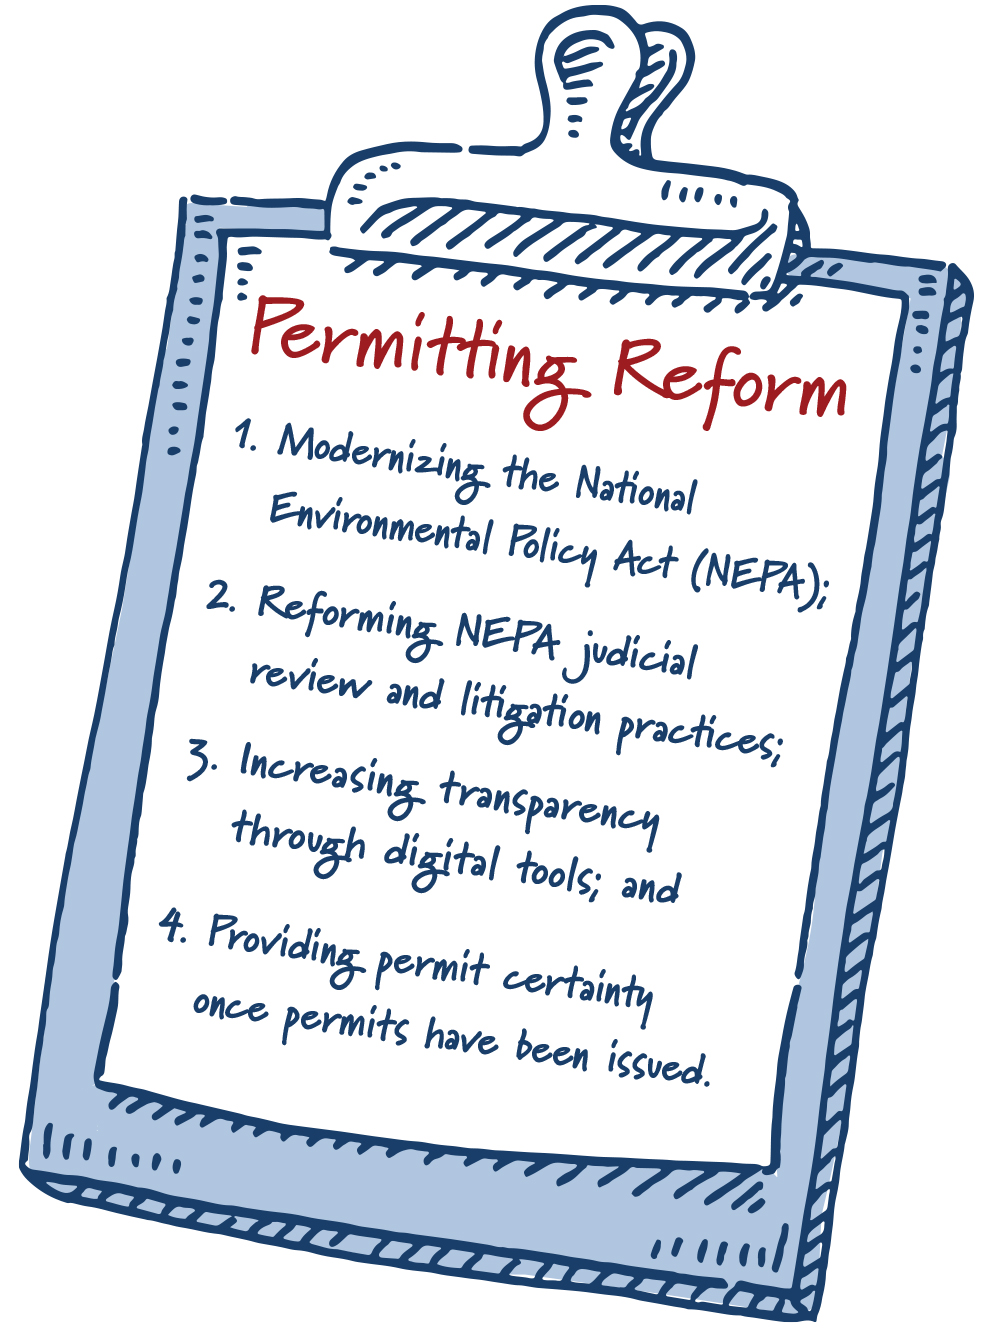 Permitting Reform
1. Modernizing the National
Environmental Policy Act (NEPA);
2. Reforming NEPA judicial
review and litigation practices;
3. Increasing transparency
through digital tools; and
4. Providing permit certainty
once permits have been issued.